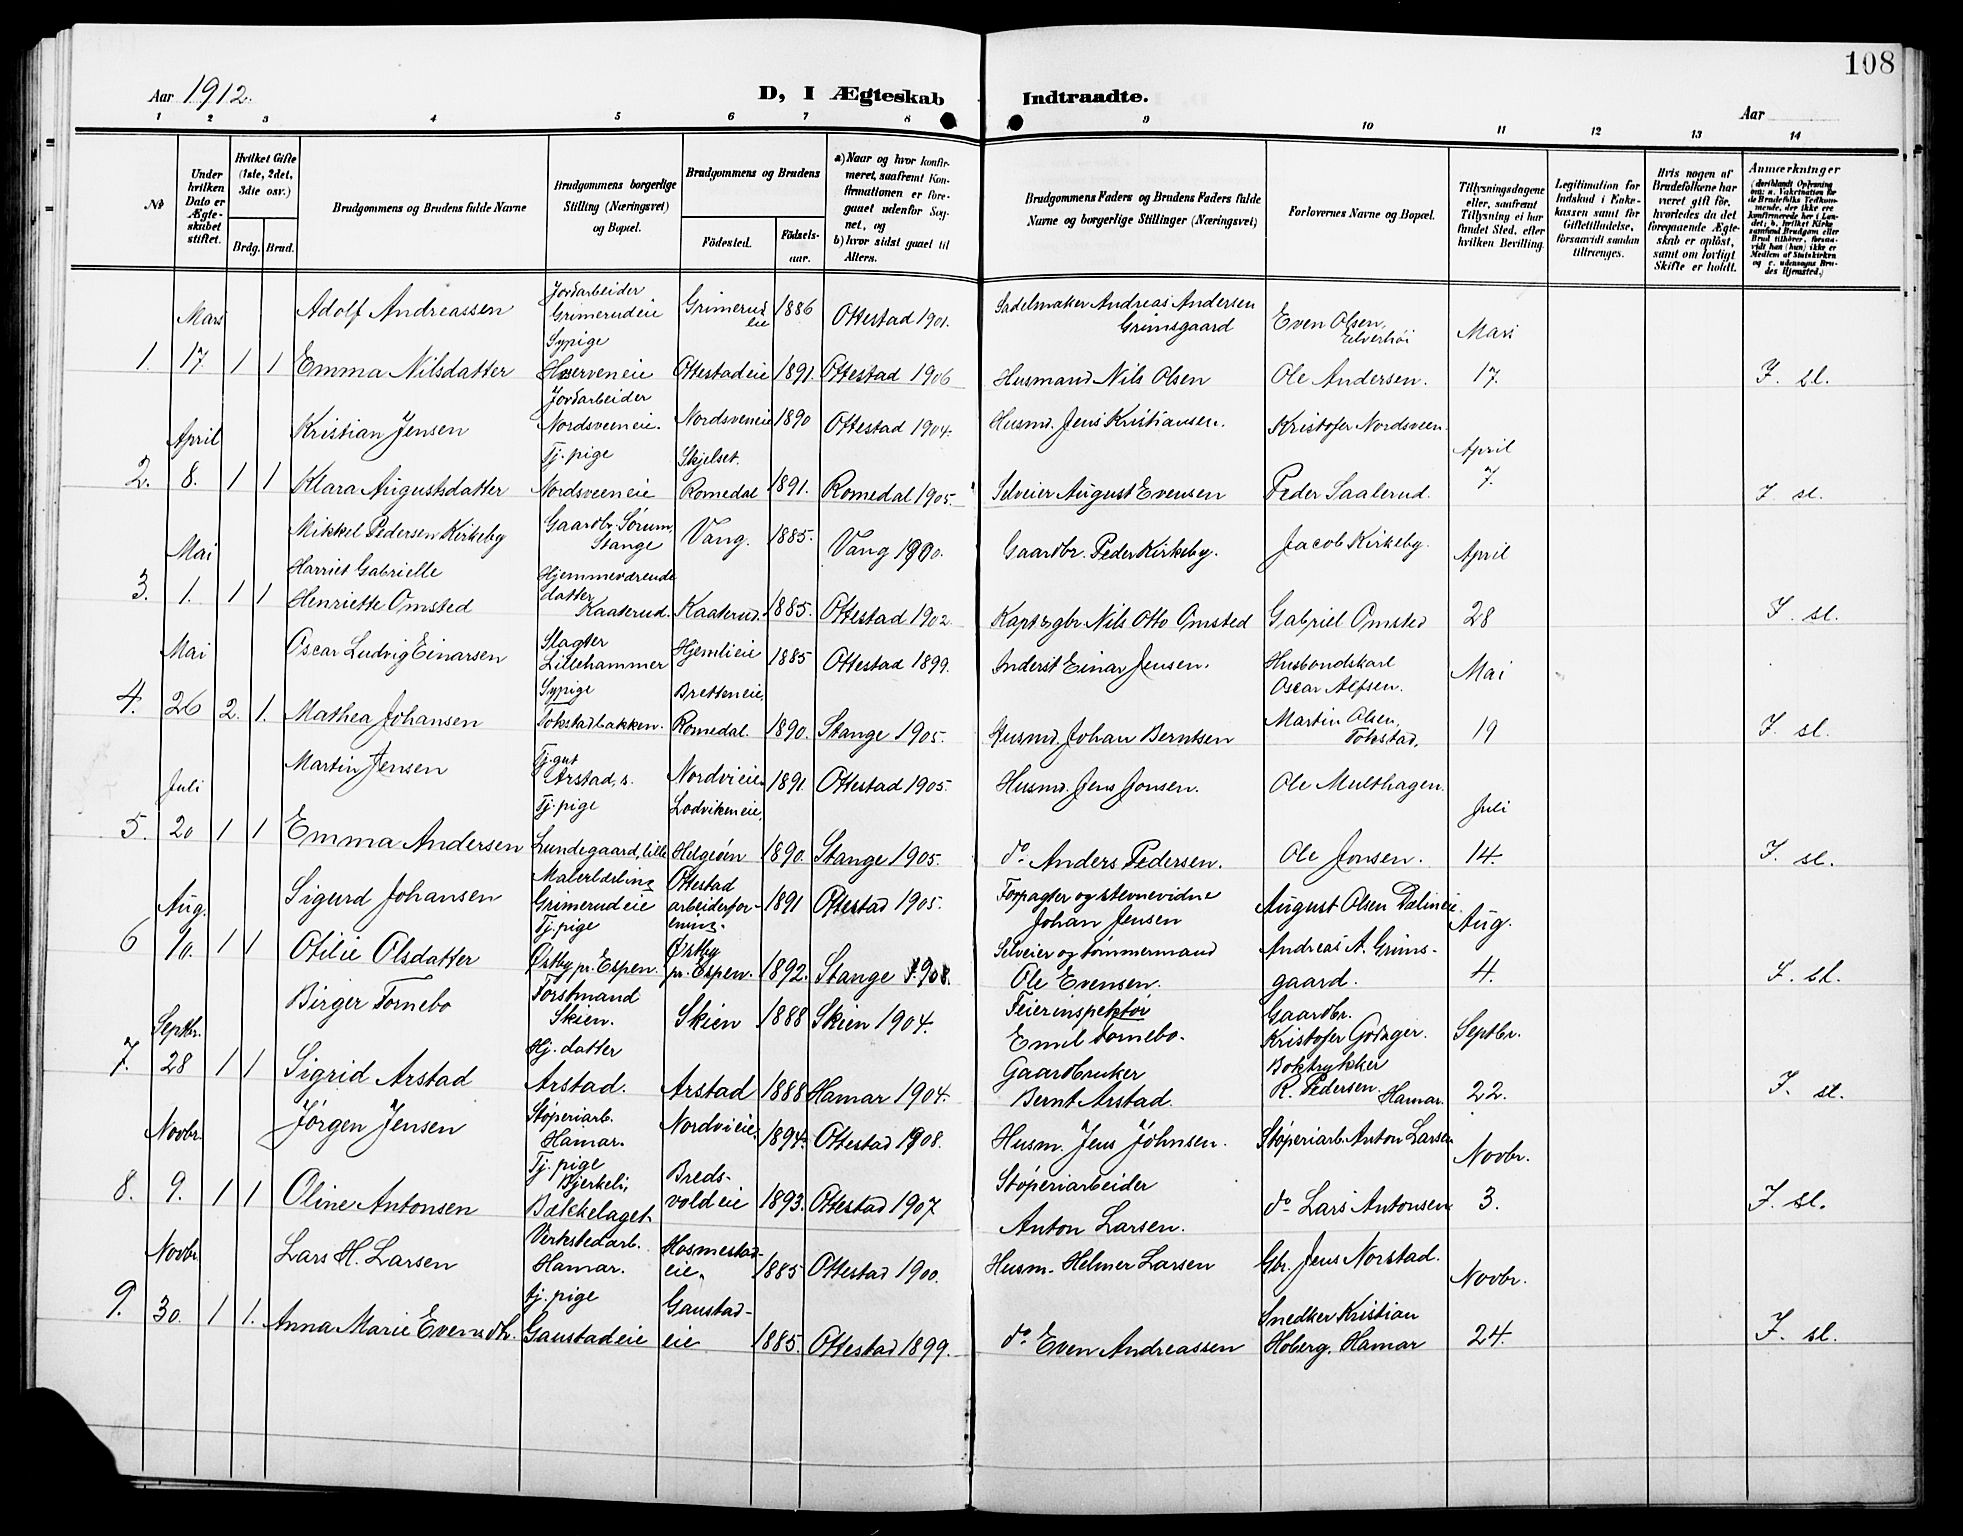 108
Aar 1912.
D, I Ægteskab Indtraadte.
Aar
1 2 3 4 5 6 7 8 9 10 11 12 13 14
No
Under hvilken Dato er Ægteskabet stiftet.
Hvilket Gifte (1ste, 2det, 3dte osv.)
Brdg. Brud.
Brudgommens og Brudens fulde Navne
Brudgommens borgerlige Stilling (Næringsvei) og Bopæl.
Brudgommens og Brudens
Fødested.
Fødselsaar.
a) Naar og hvor konfirmeret, saafremt Konfirmationen er foregaaet udenfor Sognet, og
b) hvor sidst gaaet til Alters.
Brudgommens Faders og Brudens Faders fulde Navne og borgerlige Stillinger (Næringsvei)
Forlovernes Navne og Bopæl.
Tillysningsdagene eller, saafremt Tillysning ei har fundet Sted, efter hvilken Bevilling.
Legitimation for Indskud i Enkekassen samt for Giftetilladelse, forsaavidt saadan tiltrænges.
Hvis nogen af Brudefolkene har været gift før, hvorledes da det foregaaende Ægteskab er opløst, samt om lovligt Skifte er holdt.
Anmærkninger
(deriblandt Oplysning om: a. Vakcination for de Brudefolks Vedkommende, der ikke ere konfirmerede her i Landet; b. hvilket Kirkesamfund Brudgom eller Brud tilhører, forsaavidt han (hun) ikke er Medlem af Statskirken og c. udensogns Brudes Hjemsted.)
Mars Adolf Andreassen Jordarbeider Grimerudeie Grimerudeie 1886 Ottestad 1901. Sadelmaker Andreas Andersen Grimsgaard Even Olsen, Elverhøi Mars
1. 17. 1 1 Emma Nilsdatter Sypige Hverveneie Ottestadeie 1891. Ottestad 1906 Husmand Nils Olsen Ole Andersen. 17. F. sl.
April Kristian Jensen Jordarbeider Nordsveeneie. Nordsveneie 1890 Ottestad 1904. Husmd. Jens Kristiansen. Kristofer Nordsveen. April
2. 8. 1 1 Klara Augustsdatter Tj. pige Nordsveeneie Skjelset. Romedal 1891. Romedal 1905. Selveier August Evensen Peder Saalerud. 7 F. sl.
Mai Mikkel Pedersen Kirkeby Gaardbr. Sørum, Stange Vang. 1885. Vang 1900. Gaardbr. Peder Kirkeby. Jacob Kirkeby. April
3. 1. 1 1 Harriet Gabrielle Henriette Omsted Hjemmeværende datter Kaaterud. Kaaterud. 1885. Ottestad 1902. Kapt. & gbr. Nils Otto Omsted Gabriel Omsted 28 F. sl.
Mai Oscar Ludvig Einarsen Slagter Lillehammer Hjemlieie 1885 Ottestad 1899. Inderst Einar Jensen. Husbondskarl Oscar Alfsen. Mai
4. 26 2. 1. Mathea Johansen Sypige Tokstadbakken. Bretteneie, Romedal. 1890. Stange 1905. Husmd. Johan Berntsen Martin Olsen, Tokstad, 19 F. sl.
Juli Martin Jensen Tj. gut Arstad, s. Nordvieie 1891 Ottestad 1905. Husmd. Jens Jonsen. Ole Multhagen. Juli
5. 20 1 1 Emma Andersen Tj. pige Lundegaard, lille Lodvikeneie, Helgeøen 1890. Stange 1905. do. Anders Pedersen. Ole Jonsen. 14. F. sl.
Aug. Sigurd Johansen Malerlærling Grimerudeie Ottestad arbeiderforening. 1891 Ottestad 1905. Forpagter og stevnevidne Johan Jensen August Olsen Dælineie. Aug.
6 10. 1 1 Otilie Olsdatter Tj. pige Østby pr. Espen. Østby pr. Espen. 1892. Stange 1908. Selveier og tømmermand Ole Evensen. Andreas A. Grimsgaard. 4. F. sl.
Septbr. Birger Tornebo Forstmand Skien. Skien 1888 Skien 1904. Feierinspektør Emil Tornebo. Gaardbr. Kristofer Godager. Septbr.
7. 28 1 1 Sigrid Arstad Hj. datter Arstad. Arstad 1888 Hamar 1904. Gaardbruker Bernt Arstad. Boktrykker R. Pedersen. Hamar. 22. F. sl.
Novbr. Jørgen Jensen Støperiarb. Hamar. Nordvieie. 1894. Ottestad 1908. Husm. Jens Johnsen. Støperiarb. Anton Larsen Novbr.
8. 9. 1 1 Oline Antonsen Tj. pige Bjerkeli, Bækkelaget. Bredsvoldeie 1893. Ottestad 1907 Støperiarbeider Anton Larsen. do Lars Antonsen 3. F. sl.
Novbr. Lars H. Larsen Verkstedarb. Hamar. Hosmestadeie. 1885 Ottestad 1900. Husm. Helmer Larsen Gbr. Jens Norstad. Novbr.
9. 30. 1 1. Anna Marie Evensdtr. tj. pige Gaustadeie Gaustadeie 1885. Ottestad 1899. do. Even Andreassen Snedker Kristian Hoberg, Hamar 24. F. sl.